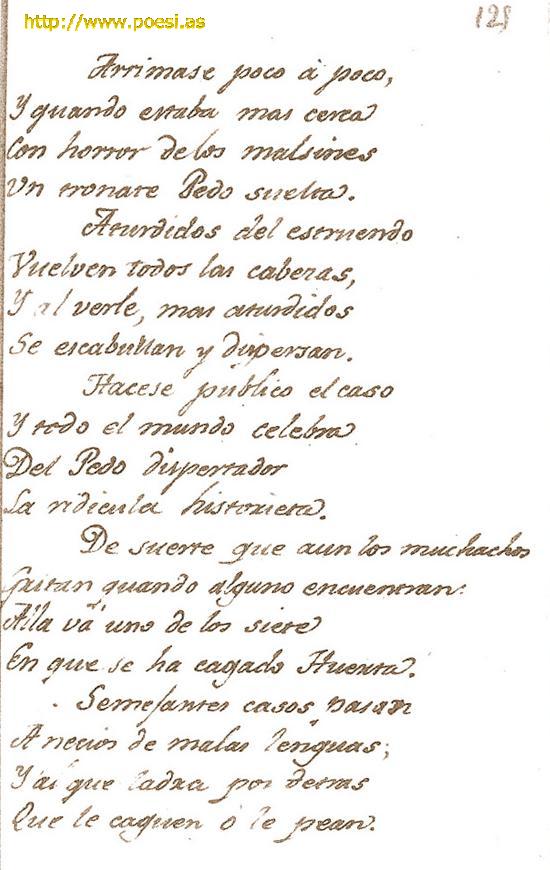 http://www.poesi.as
125
Arrimase poco à poco,
Y quando estaba mas cerca
Con horror de los malsines
Un tronate Pedo suelta.
Aturdidos del estruendo
Vuelven todos las caberas,
Y al verle, mas aturdidos
Se escabullan y dispersan.
Hacese público el caso
Y todo el mundo celebra
Del Pedo dispertador
La ridicula historieta.
De suerte que aun los muchachos
Gritan quando alguno encuentran:
Alla và uno de los siete
En que se ha cagado Huerta.
Semejantes casos pasan
A necios de malas lenguas;
Y al que ladra por detras
Que le caguen ó le pean.